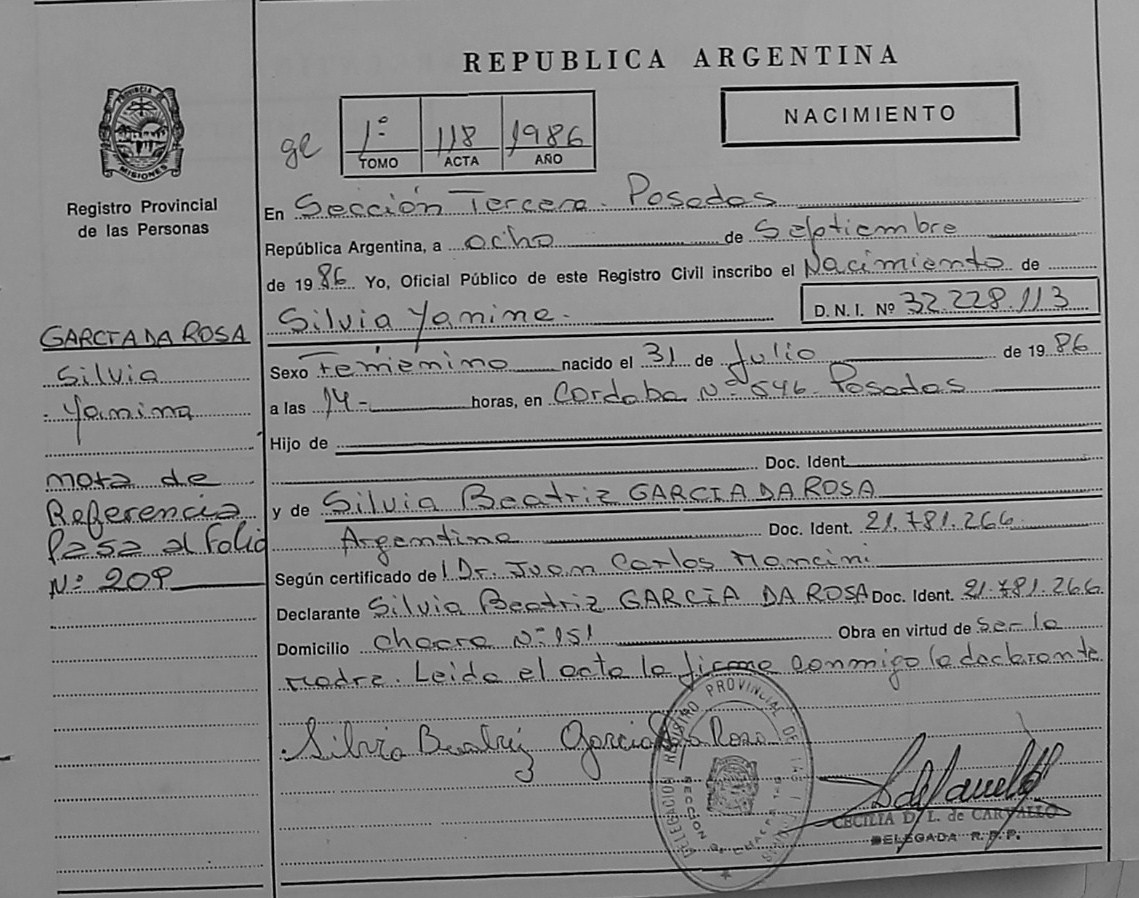 REPUBLICA ARGENTINA
PROVINCIA DE
MISIONES
Registro Provincial
de las Personas
1º 118 1986
TOMO ACTA AÑO
NACIMIENTO
En Sección Tercera. Posadas
República Argentina, a ocho de Septiembre
de 1986 Yo, Oficial Público de este Registro Civil inscribo el Nacimiento de
Silvia Yanina.
D. N. I. Nº 32.228.113
Sexo Femenino nacido el 31 de Julio de 1986
a las 14- horas, en Cordoba Nº 546. Posadas
Hijo de
Doc. Ident.
y de Silvia Beatriz GARCIA DA ROSA
Argentina Doc. Ident. 21.781.266
Según certificado del Dr. Juan Carlos Mancini
Declarante Silvia Beatriz GARCIA DA ROSA Doc. Ident. 21.781.266
Domicilio Chacra Nº 151 Obra en virtud de ser la
madre. Leida el acta la firma conmigo la declarante
Silvia Beatriz Garcia Da Rosa
GARCIA DA ROSA
Silvia
Yanina
nota de
Referencia
Pasa al Folio
Nº 209
DELEGACION REGISTRO PROVINCIAL DE LAS
SECCION
CECILIA D. L. de CARVALLO
DELEGADA R.P.P.